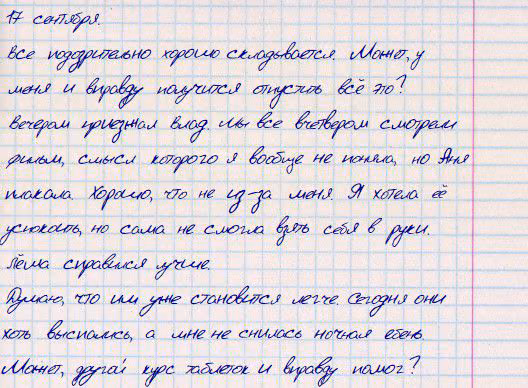 17 сентября.
Все подозрительно хорошо складывается. Может, у
меня и вправду получится отпустить всё это?
Вечером приезжал Влад. Мы все вчетвером смотрели
фильм, смысл которого я вообще не поняла, но Аня
плакала. Хорошо, что не из-за меня. Я хотела её
успокоить, но сама не смогла взять себя в руки.
Лёша справился лучше.
Думаю, что им уже становится легче. Сегодня они
хоть выспались, а мне не снилась ночная ебень.
Может, другой курс таблеток и вправду помог?